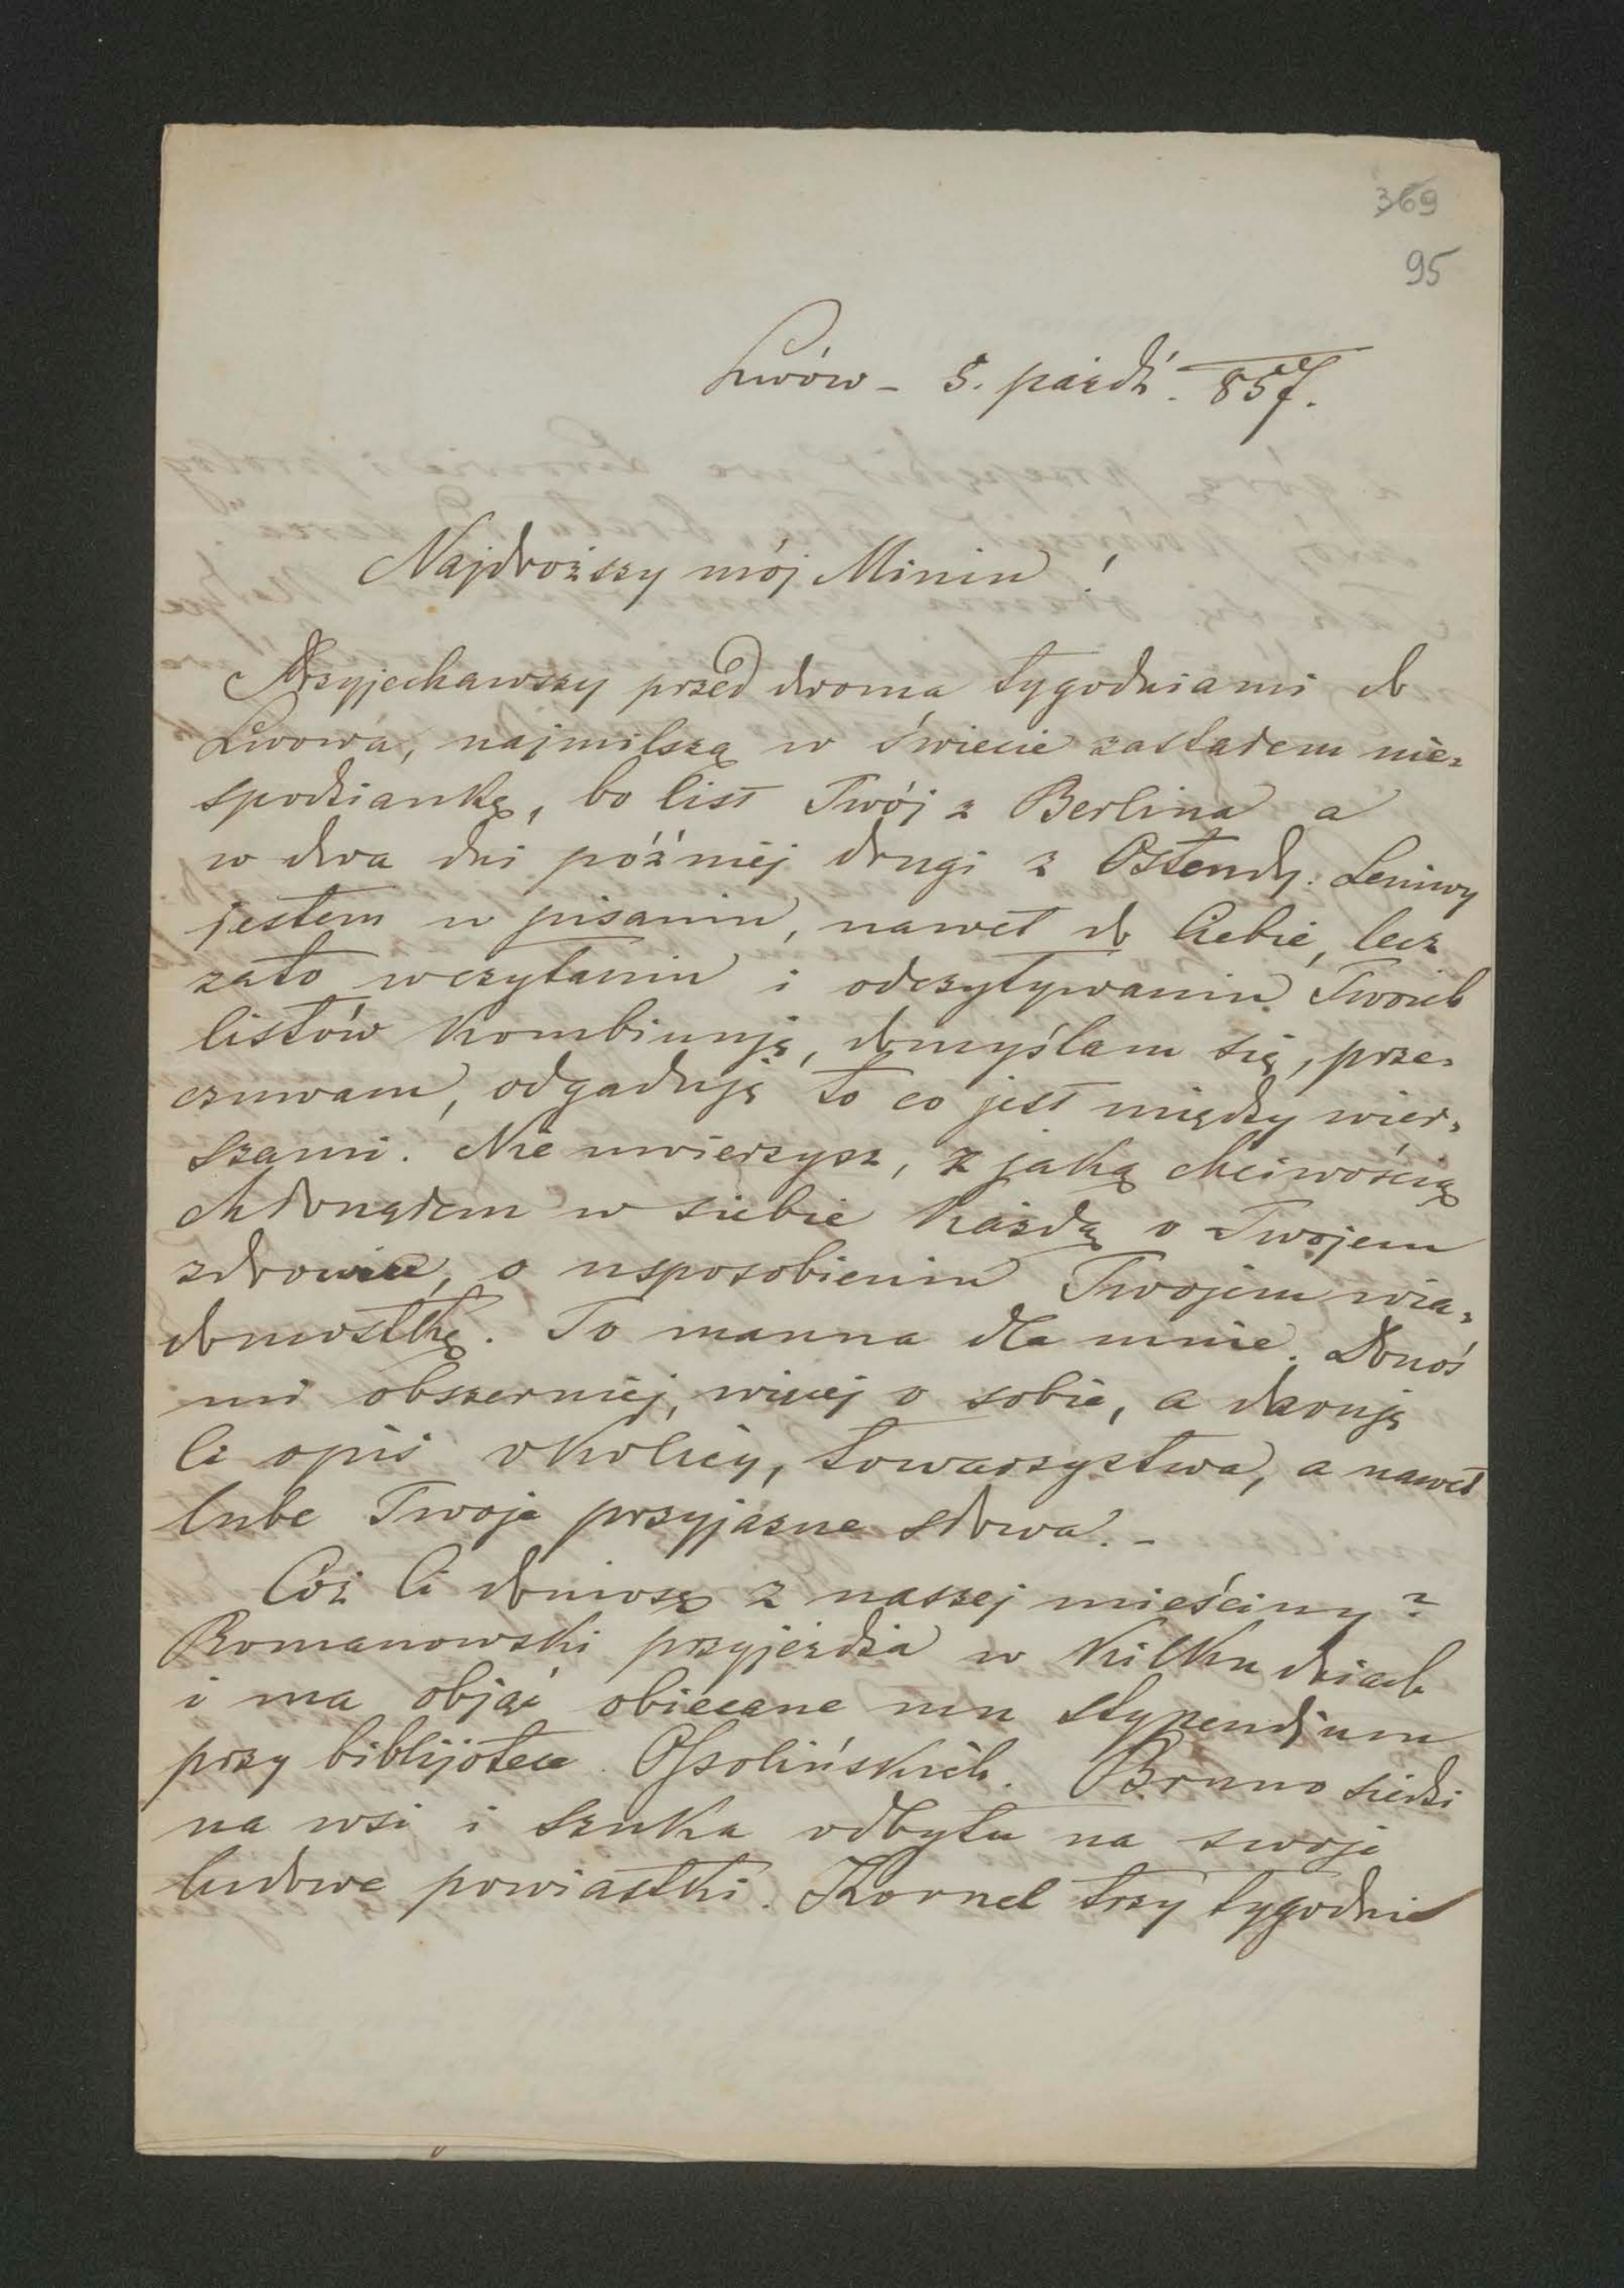 369
95
Lwów – 5. paźdź. 857.
Najdroższy mój Miniu!
Przyjechawszy przed dwoma tygodniami do
Lwowa, najmilszą w świecie zastałem nie=
spodziankę, bo list Twój z Berlina a
w dwa dni później drugi z Ostendy. Leniwy
jestem w pisaniu, nawet do Ciebie, lecz
zato wczytaniu i odczytywaniu Twoich
listów kombinuję, domyślam się, prze=
czuwam, odgaduję to co jest między wier=
szami. Nie uwierzysz, z jaką chciwością
chłonąłem w siebie każdą o Twojem
zdrowiu, o usposobieniu Twojem wia=
domostkę. To manna dla mnie. Donoś
mi obszerniej, więcej o sobie, a daruję
Ci opis okolicy, towarzystwa, a nawet
lube Twoje przyjazne słowa. –
Cóż Ci doniosę z naszej mieściny?
Romanowski przyjeżdża w kilku dniach
i ma objąć obiecane mu stypendjum
przy biblijotece Ossolińskich. Bruno siedzi
na wsi i szuka odbytu na swoje
ludowe powiastki. Kornel trzy tygodnie